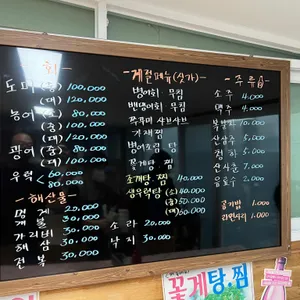 -회-
도미(중) 100,000
(대) 120,000
농어(소) 80,000
(중) 100,000
(대)
광어(중) 80,000
(대) 100,000
우럭 60,000
80,000
-해산물-
멍게 20,000
개불 30,000
가리비 30,000
해삼 30,000
전복
소라 20,000
낙지 30,000
-계절메뉴(싯가)-
병어회 무침
밴댕이회 무침
쭈꾸미 샤브샤브
간재미
병어조림 탕
꽃게탕 찜
꽃게탕 찜 40,000
생우럭탕 (소) 40,000
(중) 50,000
(대) 60,000
-주류-
소주 4,000
맥주 4,000
산삼주 5,000
청하 5,000
산사춘 7,000
음료수 2,000
공기밥 1,000
라면사리 1,000
꽃게탕.찜